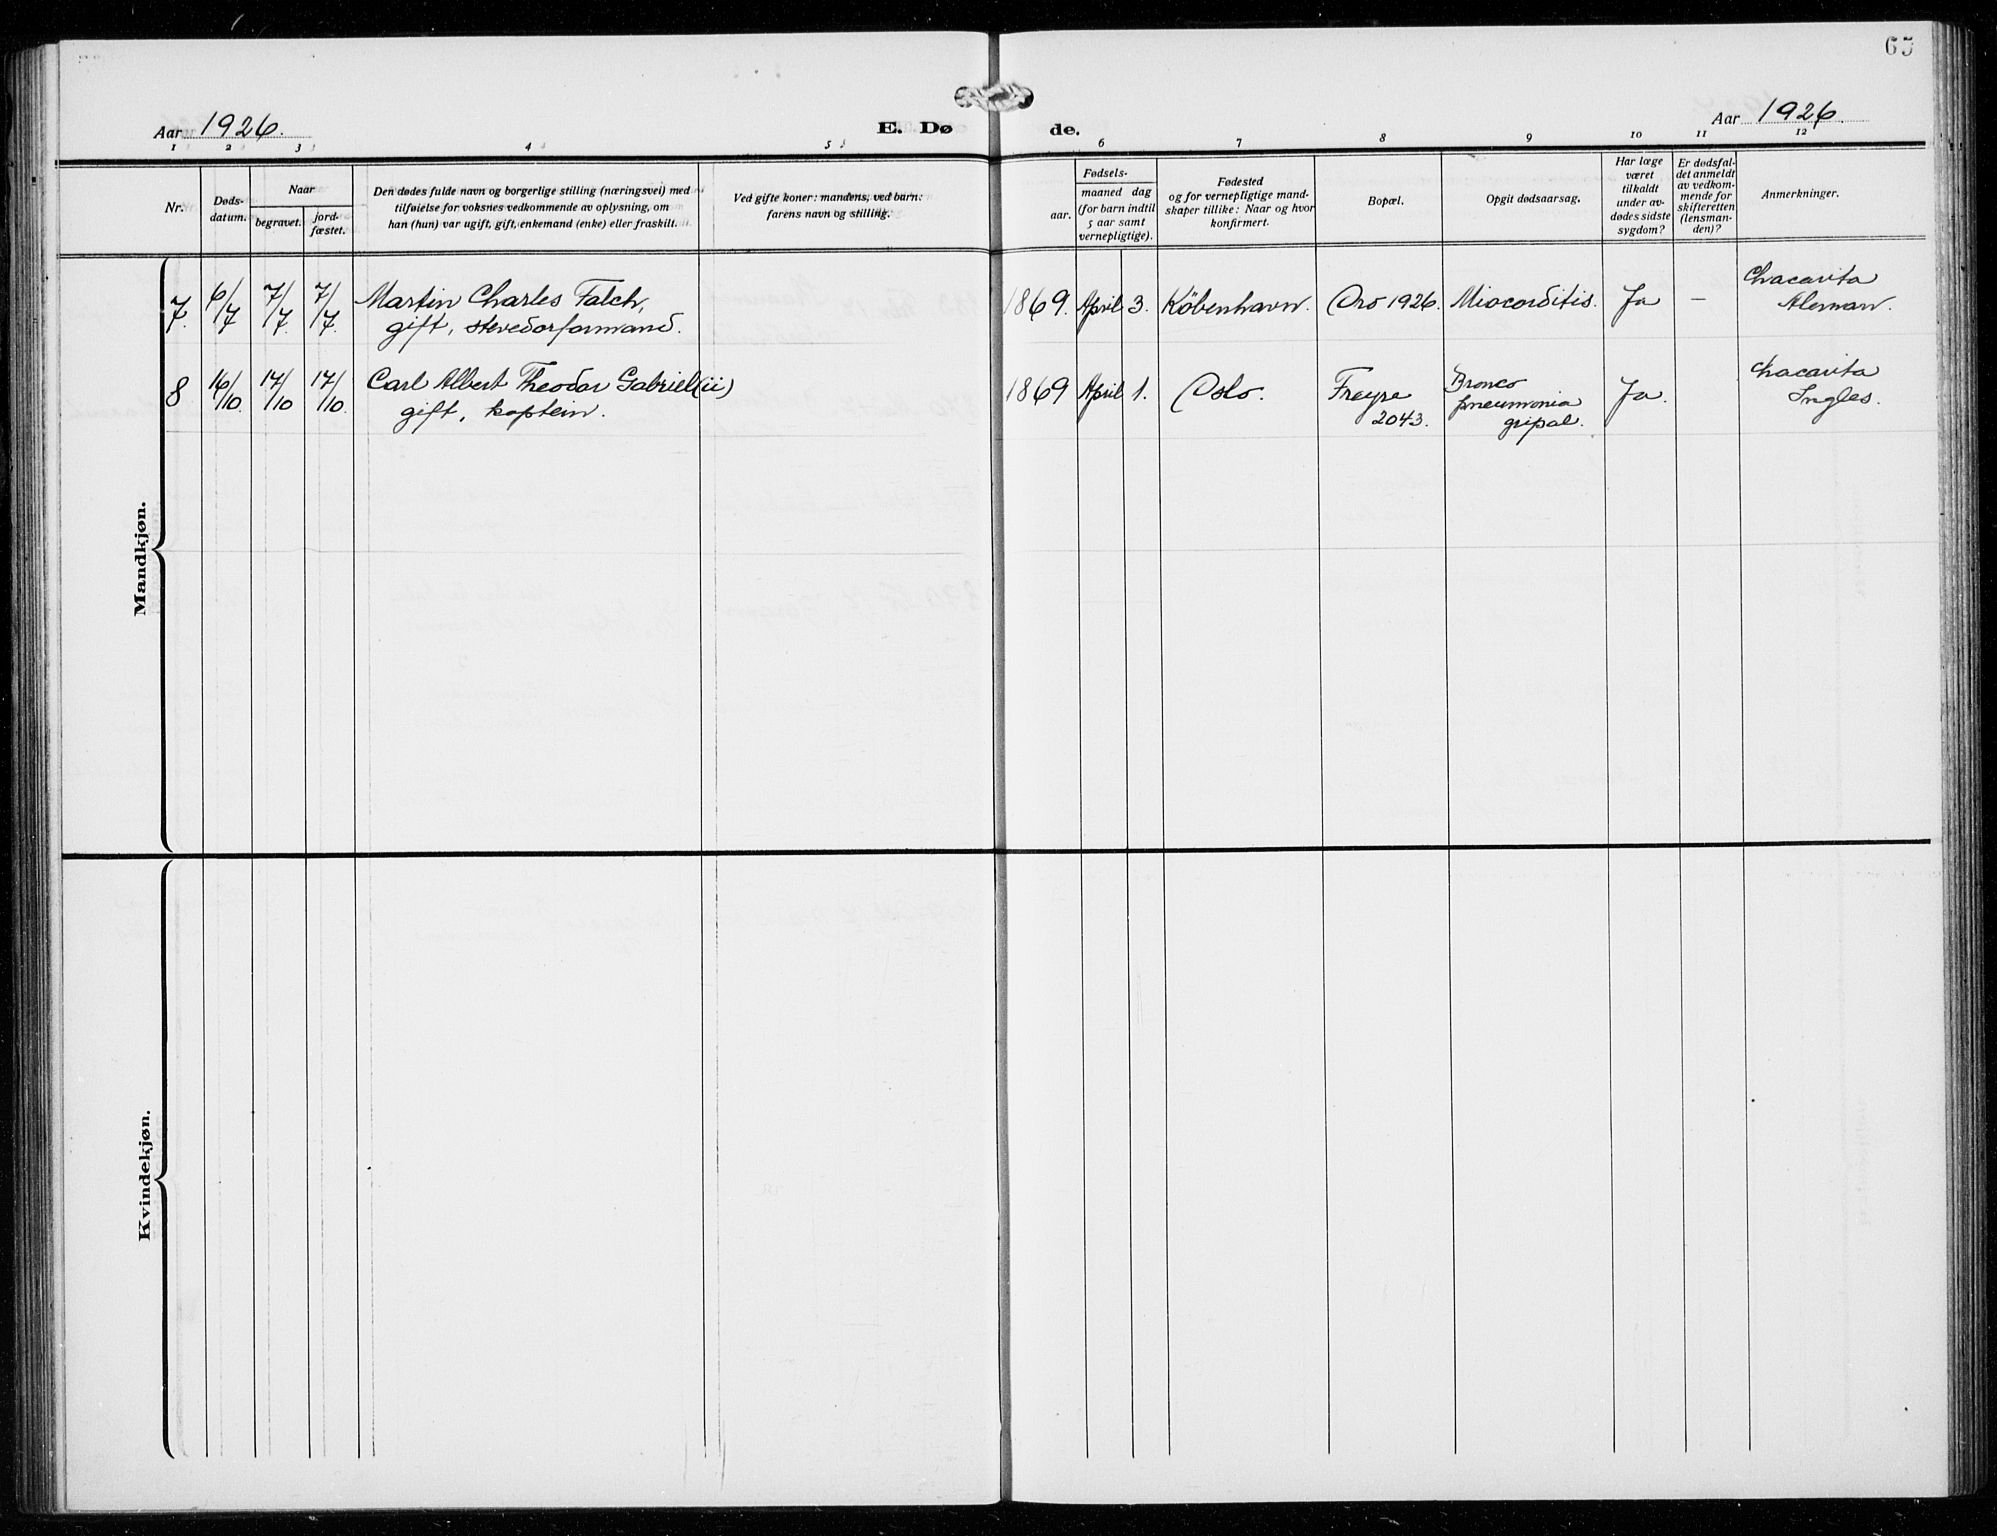 65
Aar 1926.
E. Dø de.
Aar 1926.
1 2 3 4 5 6 7 8 9 10 11 12
Nr.
Døds-
datum.
Naar
begravet.
jord-
fæstet.
Den dødes fulde navn og borgerlige stilling (næringsvei) med
tilføielse for voksnes vedkommende av oplysning, om
han (hun) var ugift, gift, enkemand (enke) eller fraskilt.
Ved gifte koner: mandens, ved barn:
farens navn og stilling.
Fødsels-
aar.
maaned dag
(for barn indtil
5 aar samt
vernepligtige).
Fødested
og for vernepligtige mand-
skaper tillike: Naar og hvor
konfirmert.
Bopæl.
Opgit dødsaarsag.
Har læge
været
tilkaldt
under av-
dødes sidste
sygdom?
Er dødsfal-
det anmeldt
av vedkom-
mende for
skifteretten
(lensman-
den)?
Anmerkninger.
Mandkjøn.
7. 6/7 7/7. 7/7. Martin Charles Falch,
gift, stevedorformand.
1869. April 3. København. Oro 1926. Miocorditis. Ja –
Chacarita
Aleman.
8 16/10. 17/10 17/10. Carl Albert Theodor Gabriel(ii)
gift, kaptein.
1869 April 1. Oslo. Freyre
2043.
Bronco
pneumonia
gripal.
Ja.
Chacarita
Ingles.
Kvindekjøn.